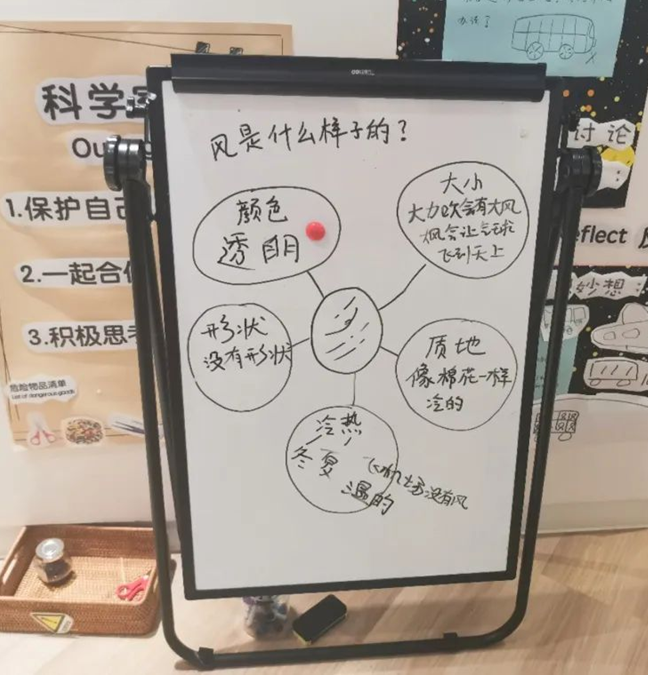 风是什么样子的？
颜色
透明
大小
大力吹会有大风
大风会让气球
飞到天上
形状
没有形状
质地
像棉花一样
冷的
冷热
冬夏
温的
飞机场没有风
科学
Ou
1.保护自己
2.一起合作
3.积极思考
危险物品清单
List of dangerous goods
讨论
eflect
妙想